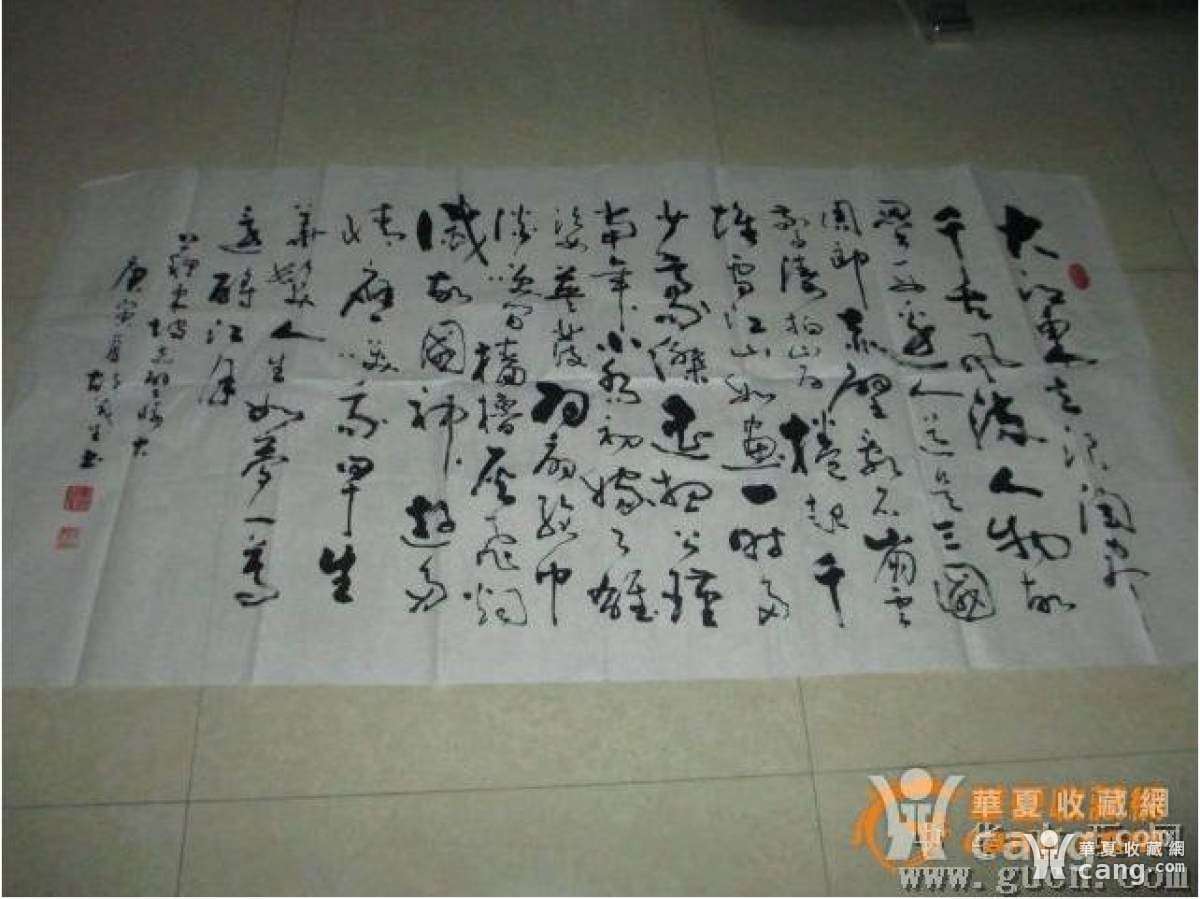 大江東去浪淘尽
千古风流人物故
壘西邊人道是三國
周郎赤壁亂石崩雲
驚濤拍岸捲起千
堆雪江山如畫一時多
少豪傑遥想公瑾
當年小喬初嫁了雄
姿英發羽扇綸巾
談笑間檣櫓灰飛烟
滅故國神遊多
情應笑我早生
華髮人生如夢一尊
還酹江月
蘇東坡念奴嬌
庚寅夏
生书
華夏收藏網
華夏收藏網
cang.com
www.gucn.com